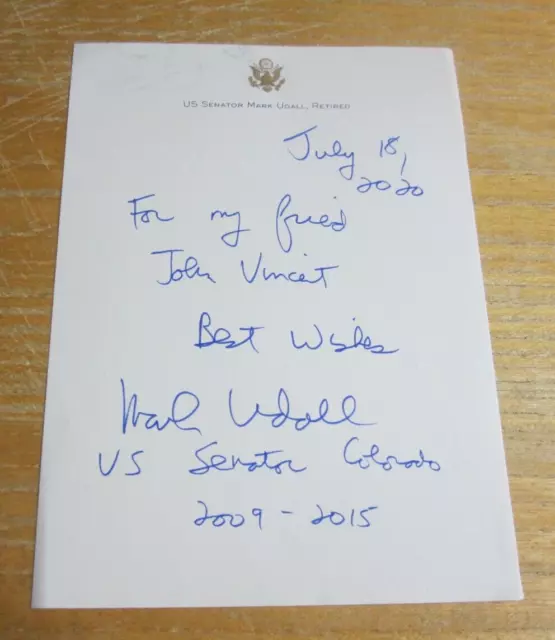 US SENATOR MARK UDALL, RETIRED
July 18,
2020
For my friend
John Vincent
Best Wishes
Mark Udall
US Senator Colorado
2009 - 2015